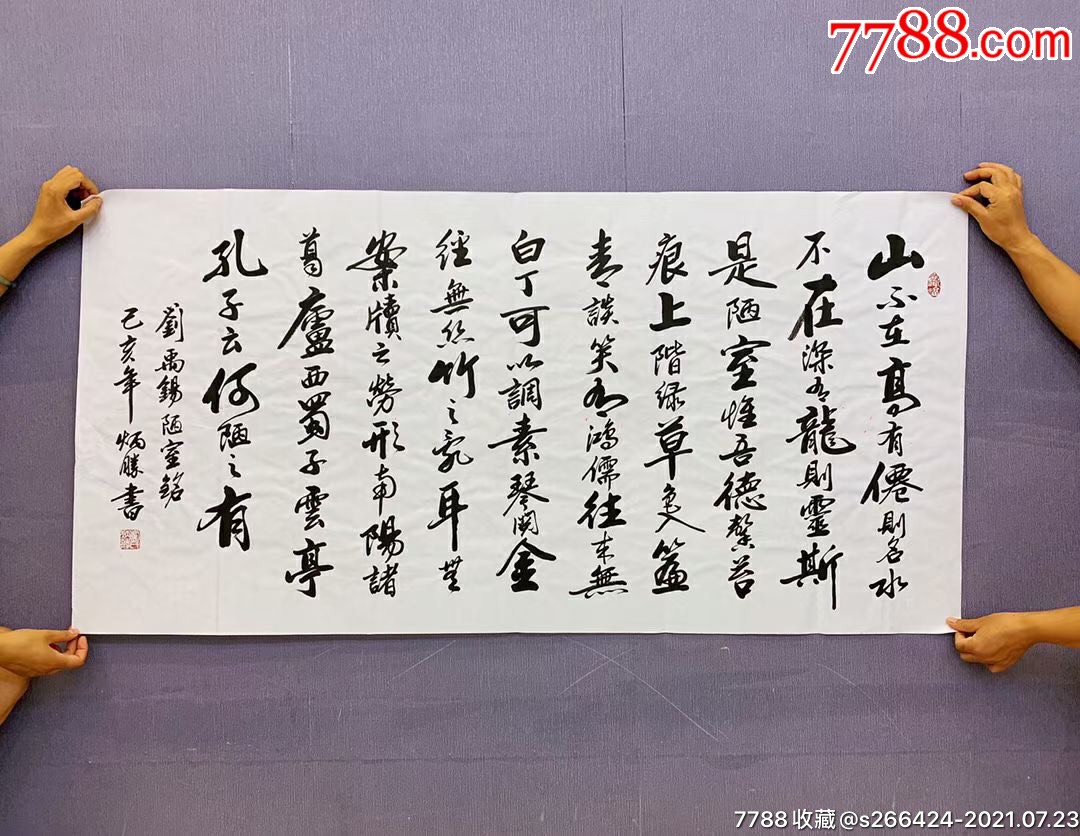 7788.com
山不在高有僊則名水
不在深有龍則靈斯
是陋室惟吾德馨苔
痕上階緑草色入簾
青談笑有鴻儒往来無
白丁可以調素琴閱金
經無絲竹之亂耳無
案牘之勞形南陽諸
葛廬西蜀子雲亭
孔子云何陋之有
劉禹錫陋室銘
己亥年炳勝書
7788收藏@s266424-2021.07.23